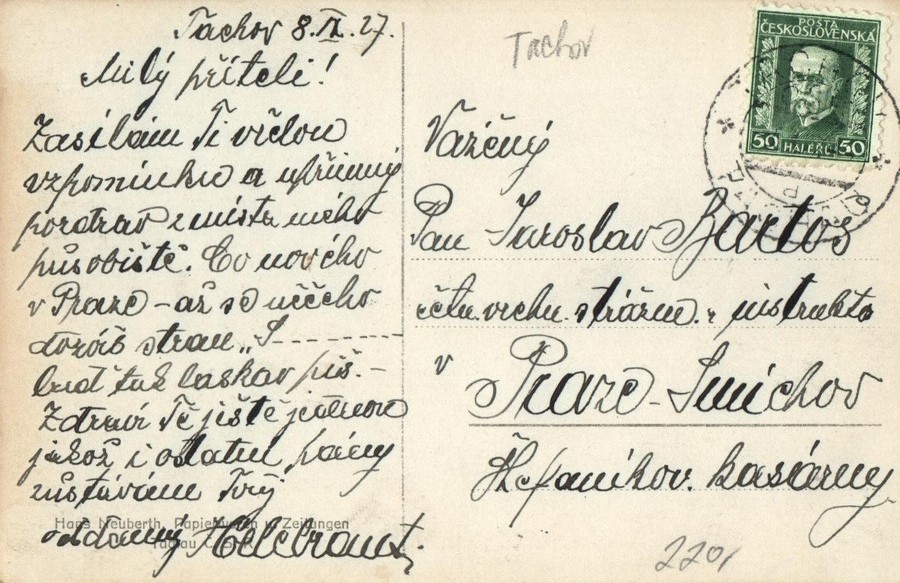 Tachov 8.IX.27.
Milý příteli!
Zasílám Ti vřelou
vzpomínku a upřímný
pozdrav z místa mého
působiště. Co nového
v Praze - až se něčeho
dozvíš stran „S
buď tak laskav piš. -
Zdraví Tě jistě jednou
jakož i ostatní pány
zůstávám Tvý
oddaný
Hans Neuberth, Papierwaren u. Zeitungen
Tachau
Tachov
POSTA
ČESKOSLOVENSKÁ
50 HALÉŘŮ 50
Vážený
Pan Jaroslav Bartoš
v
Praze - Smíchov
Štefaníkov. kasárny
2201